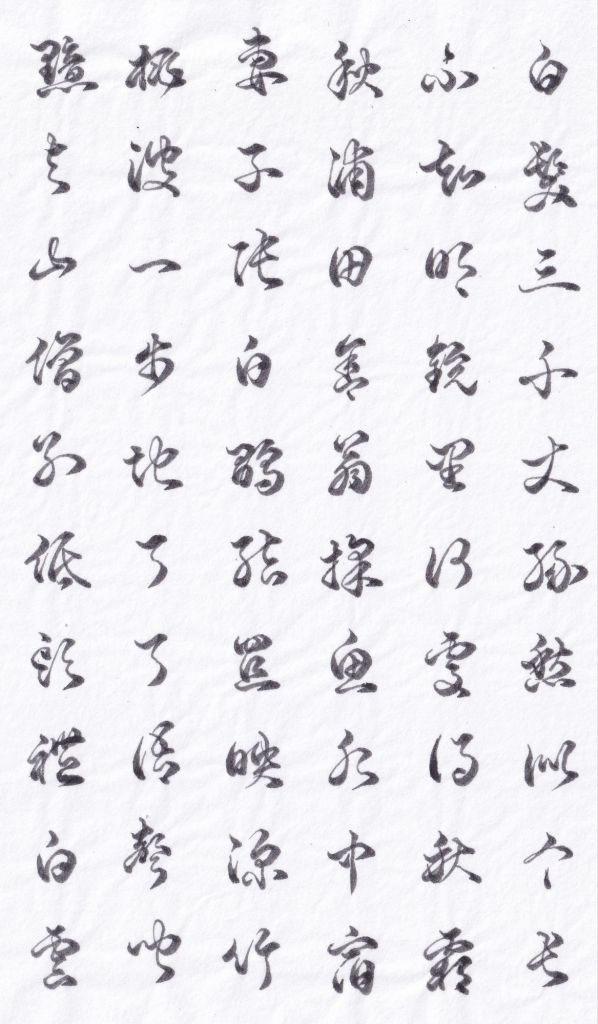 白髮三千丈緣愁似个長
不知明鏡里何處得秋霜
秋浦田舍翁採魚水中宿
妻子張白鷴結罝映深竹
桃波一步地了了語聲聞
黯与山僧別低頭禮白雲